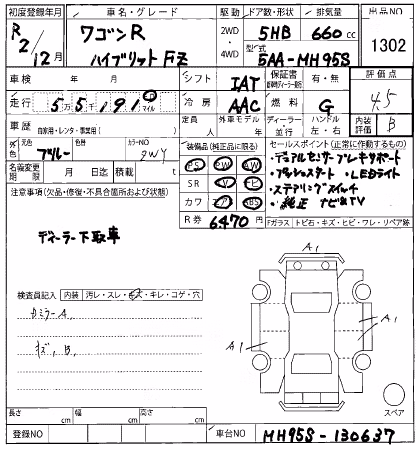 初度登録年月 車名・グレード 駆動 ドア数・形状 排気量 出品NO
R2/12月 ワゴンR ハイブリットFZ 2WD・4WD 5HB 660cc 1302
型式 5AA-MH95S
車検 年 月 シフト IAT 保証書 有・無 評価点 4.5
走行 5 5 1 9 1 0 マイル 冷房 AAC 燃料 G
車歴 自家用・レンタ・事業用( ) 定員 人 外車モデル 年 ディーラー 並行 ハンドル 左・右 内装評価 B
外色 元色 ブルー 色替 カラーNO ZWY
装備品(純正品に限る) PS PW AW SR ナビ TV カワ エアB ABS
セールスポイント(正常に作動するもの)
・デュアルセンサーブレーキサポート
・プッシュスタート ・LEDライト
・ステアリングスイッチ
・純正 ナビ&TV
名義変更期限 月 日迄 積載 t
R券 6470円
注意事項(欠品・修復・不具合箇所および状態)
ディーラー下取車
Fガラス トビ石・キズ・ヒビ・ワレ・リペア跡
A1
A1
A1
検査員記入 内装 汚レ・スレ・キズ・キレ・コゲ・穴
カミラーA
キズ、B
スペア
長さ cm 幅 cm 高さ cm
登録NO 車台NO MH95S-130637